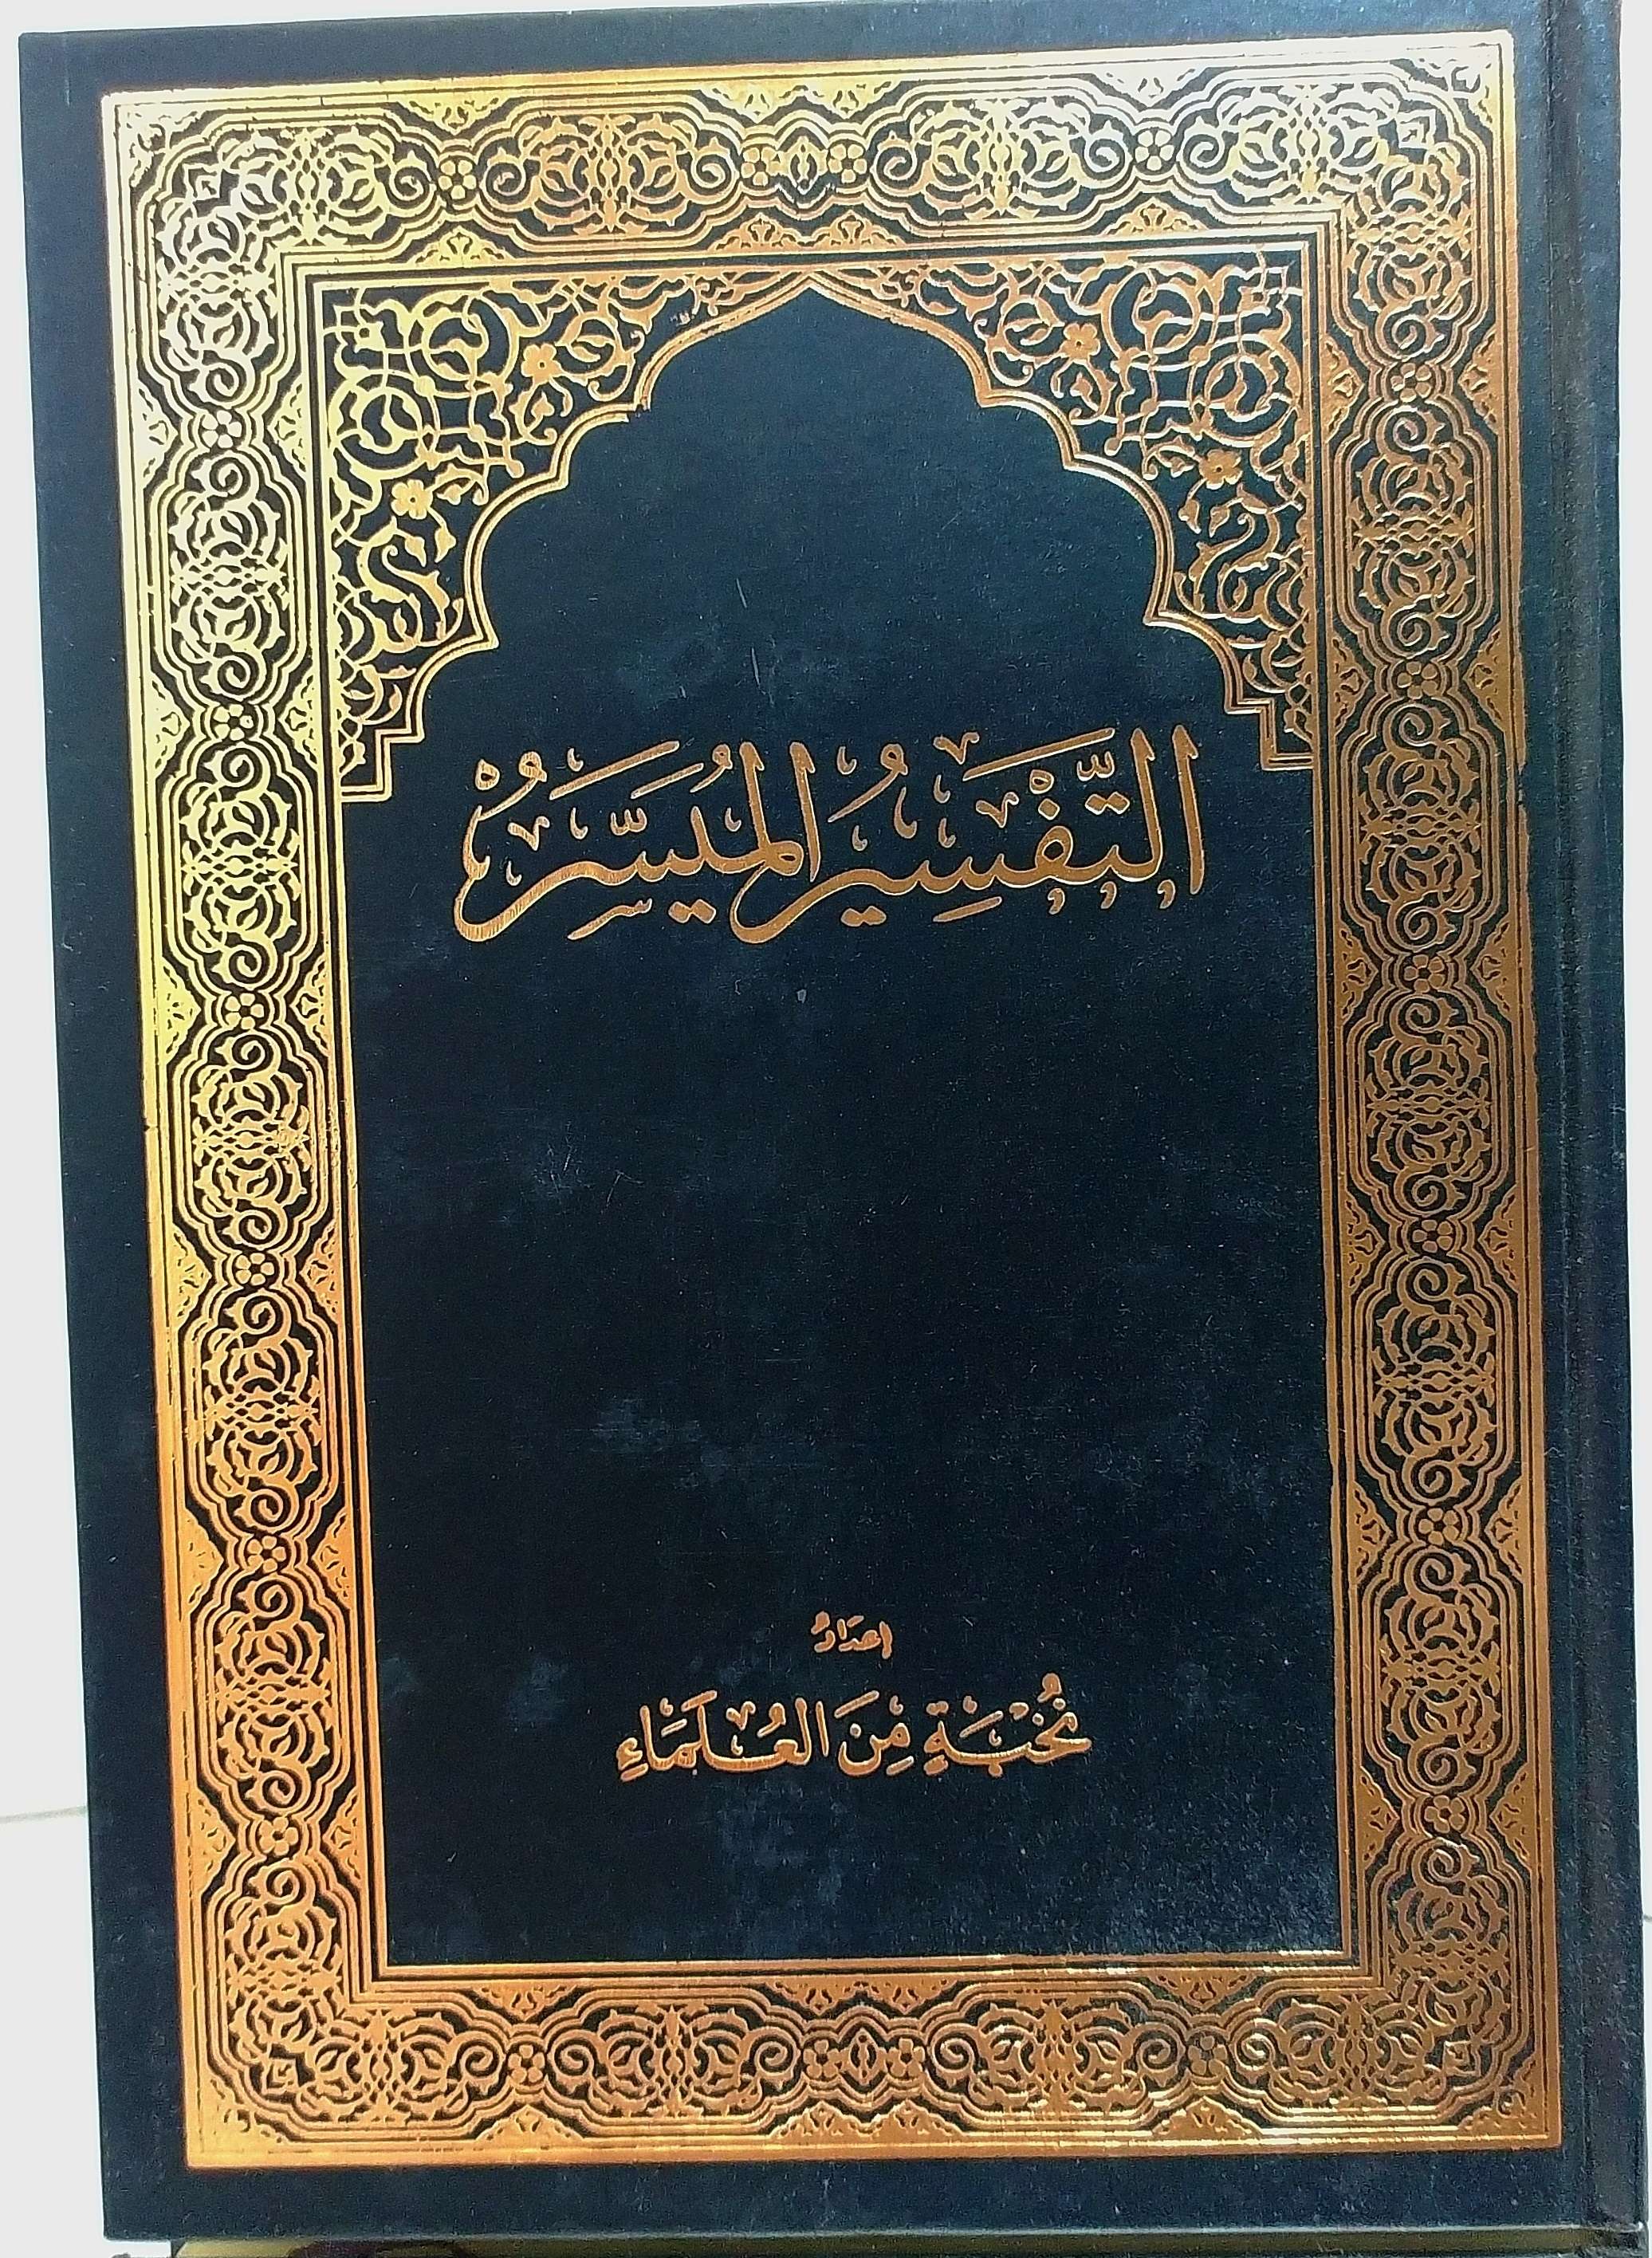 التَّفْسِيرُ المُيَسَّرُ
إعدَادُ
نُخْبَةٍ مِنَ العُلَمَاءِ